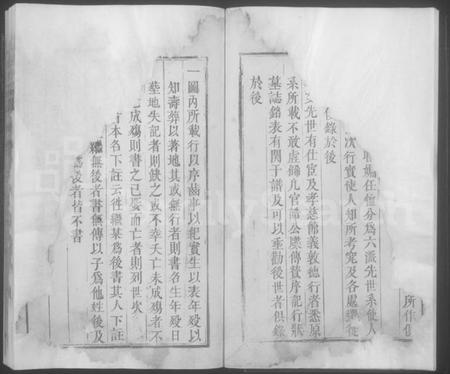 所作
任愷分為六派先世系他人
次行實使人知所考究及各處遷徙
錄於後
先世有仕宦及孝慈節義敦德行者悉原
系所載不敢虛飾凡官誥公墨傳贊序記行狀
墓誌銘表有關于譜及可以垂勸後世者俱錄
於後
一圖內所載行以序齒字以紀實生以表年歿以
知壽葬以著地其或無行者則書各生年歿日
塋地失記者則缺之或不幸夭亡未成殤者不
成殤則書之已娶而亡者則列世次
本名下註云徃繼某為後書其人下註
無後者書無傳以子為他姓後及
後者皆不書